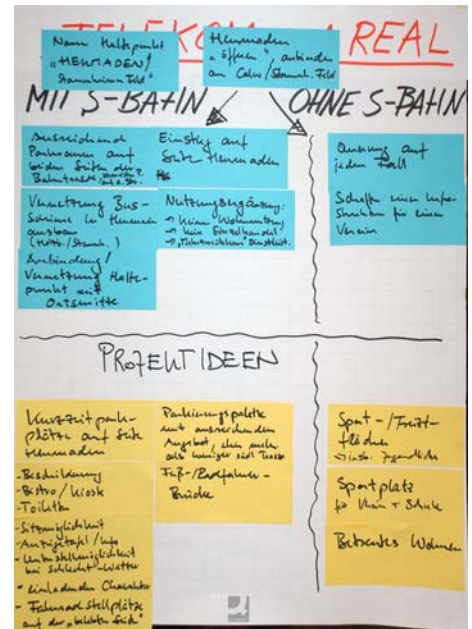 TELEKOM AREAL
Name Haltepunkt
„HEUMADEN/
Stammheimer Feld"
Heumaden
„öffnen" anbinden
an Calw/Stammh. Feld
MIT S-BAHN
OHNE S-BAHN
Ausreichend
Parkraum auf
beiden Seiten der
Bahntrasse
Einstieg auf
Seite Heumaden
Vernetzung Bus-
Schiene in Heumaden
ausbauen
(Heum./Stammh.)
Nutzungsergänzung:
→ keine Wohnnutzung
→ kein Einzelhandel
Anbindung/
Vernetzung Halte-
punkt mit
Ortsmitte
auf
jeden Fall
Schaffen einer Infra-
struktur für einen
Verein
PROJEKTIDEEN
Kurzzeitpark-
plätze auf Seite
Heumaden
- Beschilderung
- Bistro/Kiosk
- Toiletten
- Sitzmöglichkeit
- Anzeigetafel/Info
- Unterstellmöglichkeit
bei Schlecht-Wetter
- einladender Charakter
- Fahrradstellplätze
auf der „belebten Seite"
Parkierungspalette
mit ausreichendem
Angebot, eher mehr
als weniger
Fuß-/Radfahrer-
Brücke
Sport-/Freizeit-
flächen
→ insb. Jugendliche
Sportplatz
für Verein + Schule
Betreutes Wohnen